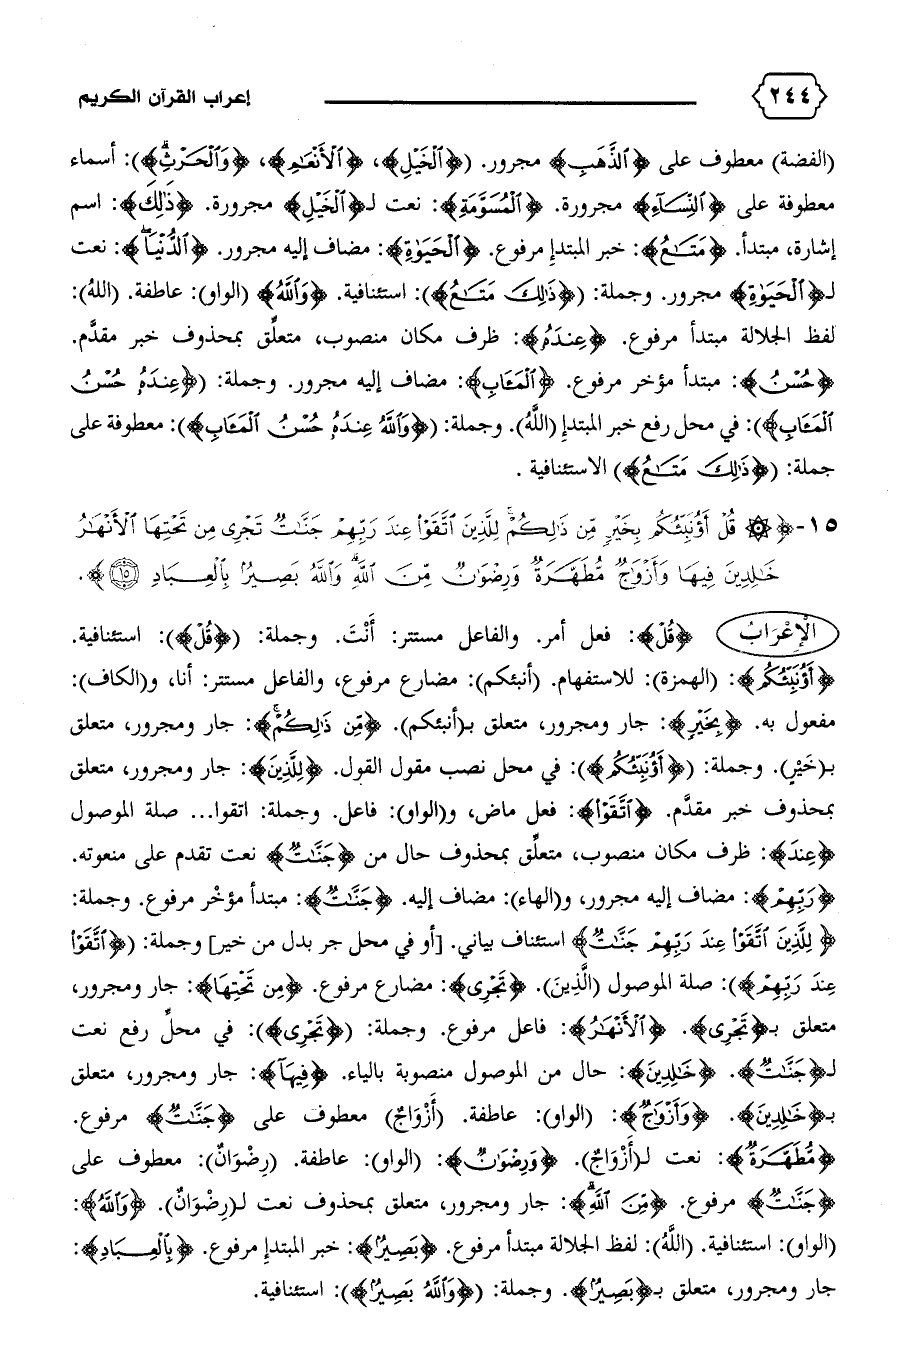 ٢٤٤ إعراب القرآن الكريم
(الفضة) معطوف على ﴿ٱلذَّهَبِ﴾ مجرور. (﴿ٱلْخَيْلِ﴾، ﴿ٱلْأَنْعَٰمِ﴾، ﴿وَٱلْحَرْثِ﴾): أسماء
معطوفة على ﴿ٱلنِّسَآءِ﴾ مجرورة. ﴿ٱلْمُسَوَّمَةِ﴾: نعت لـ﴿ٱلْخَيْلِ﴾ مجرورة. ﴿ذَٰلِكَ﴾: اسم
إشارة، مبتدأ. ﴿مَتَٰعُ﴾: خبر المبتدإ مرفوع. ﴿ٱلْحَيَوٰةِ﴾: مضاف إليه مجرور. ﴿ٱلدُّنْيَا﴾: نعت
لـ﴿ٱلْحَيَوٰةِ﴾ مجرور. وجملة: (﴿ذَٰلِكَ مَتَٰعُ﴾): استئنافية. ﴿وَٱللَّهُ﴾ (الواو): عاطفة. (اللهُ):
لفظ الجلالة مبتدأ مرفوع. ﴿عِندَهُۥ﴾: ظرف مكان منصوب، متعلِّق بمحذوف خبر مقدَّم.
﴿حُسْنُ﴾: مبتدأ مؤخر مرفوع. ﴿ٱلْمَـَٔابِ﴾: مضاف إليه مجرور. وجملة: (﴿عِندَهُۥ حُسْنُ
ٱلْمَـَٔابِ﴾): في محل رفع خبر المبتدإ (اللَّهُ). وجملة: (﴿وَٱللَّهُ عِندَهُۥ حُسْنُ ٱلْمَـَٔابِ﴾): معطوفة على
جملة: (﴿ذَٰلِكَ مَتَٰعُ﴾) الاستئنافية .
١٥- ﴿۞ قُلْ أَؤُنَبِّئُكُم بِخَيْرٍ مِّن ذَٰلِكُمْ ۚ لِلَّذِينَ ٱتَّقَوْا۟ عِندَ رَبِّهِمْ جَنَّٰتٌ تَجْرِى مِن تَحْتِهَا ٱلْأَنْهَٰرُ
خَٰلِدِينَ فِيهَا وَأَزْوَٰجٌ مُّطَهَّرَةٌ وَرِضْوَٰنٌ مِّنَ ٱللَّهِ ۗ وَٱللَّهُ بَصِيرٌۢ بِٱلْعِبَادِ ١٥﴾.
الْإِعْرَابُ ﴿قُلْ﴾: فعل أمر. والفاعل مستتر: أَنْتَ. وجملة: (﴿قُلْ﴾): استئنافية.
﴿أَؤُنَبِّئُكُم﴾: (الهمزة): للاستفهام. (أنبئكم): مضارع مرفوع، والفاعل مستتر: أنا، و(الكاف):
مفعول به. ﴿بِخَيْرٍ﴾: جار ومجرور، متعلق بـ(أنبئكم). ﴿مِّن ذَٰلِكُمْ ۚ﴾: جار ومجرور، متعلق
بـ(خَيْرٍ). وجملة: (﴿أَؤُنَبِّئُكُم﴾): في محل نصب مقول القول. ﴿لِلَّذِينَ﴾: جار ومجرور، متعلق
بمحذوف خبر مقدَّم. ﴿ٱتَّقَوْا۟﴾: فعل ماض، و(الواو): فاعل. وجملة: اتقوا... صلة الموصول
﴿عِندَ﴾: ظرف مكان منصوب، متعلِّق بمحذوف حال من ﴿جَنَّٰتٌ﴾ نعت تقدم على منعوته.
﴿رَبِّهِمْ﴾: مضاف إليه مجرور، و(الهاء): مضاف إليه. ﴿جَنَّٰتٌ﴾: مبتدأ مؤخْر مرفوع. وجملة:
﴿لِلَّذِينَ ٱتَّقَوْا۟ عِندَ رَبِّهِمْ جَنَّٰتٌ﴾ استئناف بياني. [أو في محل جر بدل من خير] وجملة: (﴿ٱتَّقَوْا۟
عِندَ رَبِّهِمْ﴾): صلة الموصول (الَّذِينَ). ﴿تَجْرِى﴾: مضارع مرفوع. ﴿مِن تَحْتِهَا﴾: جار ومجرور،
متعلق بـ﴿تَجْرِى﴾. ﴿ٱلْأَنْهَٰرُ﴾: فاعل مرفوع. وجملة: (﴿تَجْرِى﴾): في محلِّ رفع نعت
لـ﴿جَنَّٰتٌ﴾. ﴿خَٰلِدِينَ﴾: حال من الموصول منصوبة بالياء. ﴿فِيهَآ﴾: جار ومجرور، متعلق
بـ﴿خَٰلِدِينَ﴾. ﴿وَأَزْوَٰجٌ﴾: (الواو): عاطفة. (أَزْوَاجٌ) معطوف على ﴿جَنَّٰتٌ﴾ مرفوع.
﴿مُّطَهَّرَةٌ﴾: نعت لـ(أَزْوَاجٌ). ﴿وَرِضْوَٰنٌ﴾: (الواو): عاطفة. (رِضْوَانٌ): معطوف على
﴿جَنَّٰتٌ﴾ مرفوع. ﴿مِّنَ ٱللَّهِ ۗ﴾: جار ومجرور، متعلق بمحذوف نعت لـ(رِضْوَانٌ). ﴿وَٱللَّهُ﴾:
(الواو): استئنافية. (اللَّهُ): لفظ الجلالة مبتدأ مرفوع. ﴿بَصِيرٌۢ﴾: خبر المبتدإ مرفوع. ﴿بِٱلْعِبَادِ﴾:
جار ومجرور، متعلق بـ﴿بَصِيرٌۢ﴾. وجملة: (﴿وَٱللَّهُ بَصِيرٌۢ﴾): استئنافية.